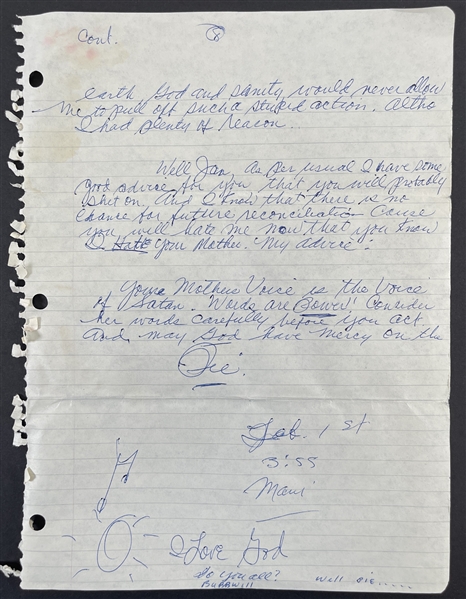 Cont. 8
earth God and sanity would never allow
me to pull off such a stupid action. Altho
I had plenty of reason.
Well Jan, as per usual I have some
good advice for you that you will probably
shit on. And I know that there is no
chance for future reconciliation cause
you will hate me now that you know
I Hate your Mother. My advice:
Youre Mothers Voice is the Voice
of Satan. Words are Power! Consider
her words carefully before you act
And may God have mercy on the
Die.
Feb. 1st
3:55
Maui
I Love God
do you all?
will die.....